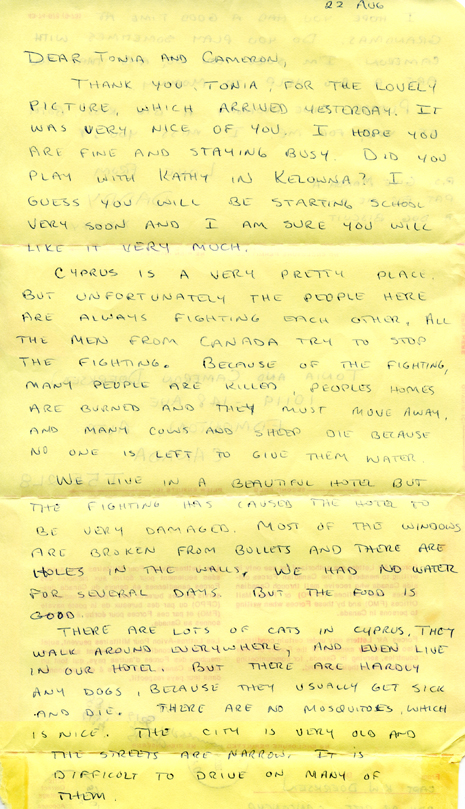 22 AUG
DEAR TONIA AND CAMERON,
THANK YOU, TONIA, FOR THE LOVELY
PICTURE, WHICH ARRIVED YESTERDAY. IT
WAS VERY NICE OF YOU. I HOPE YOU
ARE FINE AND STAYING BUSY. DID YOU
PLAY WITH KATHY IN KELOWNA? I
GUESS YOU WILL BE STARTING SCHOOL
VERY SOON AND I AM SURE YOU WILL
LIKE IT VERY MUCH.
CYPRUS IS A VERY PRETTY PLACE.
BUT UNFORTUNATELY THE PEOPLE HERE
ARE ALWAYS FIGHTING EACH OTHER. ALL
THE MEN FROM CANADA TRY TO STOP
THE FIGHTING. BECAUSE OF THE FIGHTING,
MANY PEOPLE ARE KILLED PEOPLES HOMES
ARE BURNED AND THEY MUST MOVE AWAY,
AND MANY COWS AND SHEEP DIE BECAUSE
NO ONE IS LEFT TO GIVE THEM WATER.
WE LIVE IN A BEAUTIFUL HOTEL BUT
THE FIGHTING HAS CAUSED THE HOTEL TO
BE VERY DAMAGED. MOST OF THE WINDOWS
ARE BROKEN FROM BULLETS AND THERE ARE
HOLES IN THE WALLS. WE HAD NO WATER
FOR SEVERAL DAYS. BUT THE FOOD IS
GOOD.
THERE ARE LOTS OF CATS IN CYPRUS. THEY
WALK AROUND EVERYWHERE, AND EVEN LIVE
IN OUR HOTEL. BUT THERE ARE HARDLY
ANY DOGS, BECAUSE THEY USUALLY GET SICK
AND DIE. THERE ARE NO MOSQUITOES, WHICH
IS NICE. THE CITY IS VERY OLD AND
THE STREETS ARE NARROW. IT IS
DIFFICULT TO DRIVE ON MANY OF
THEM.